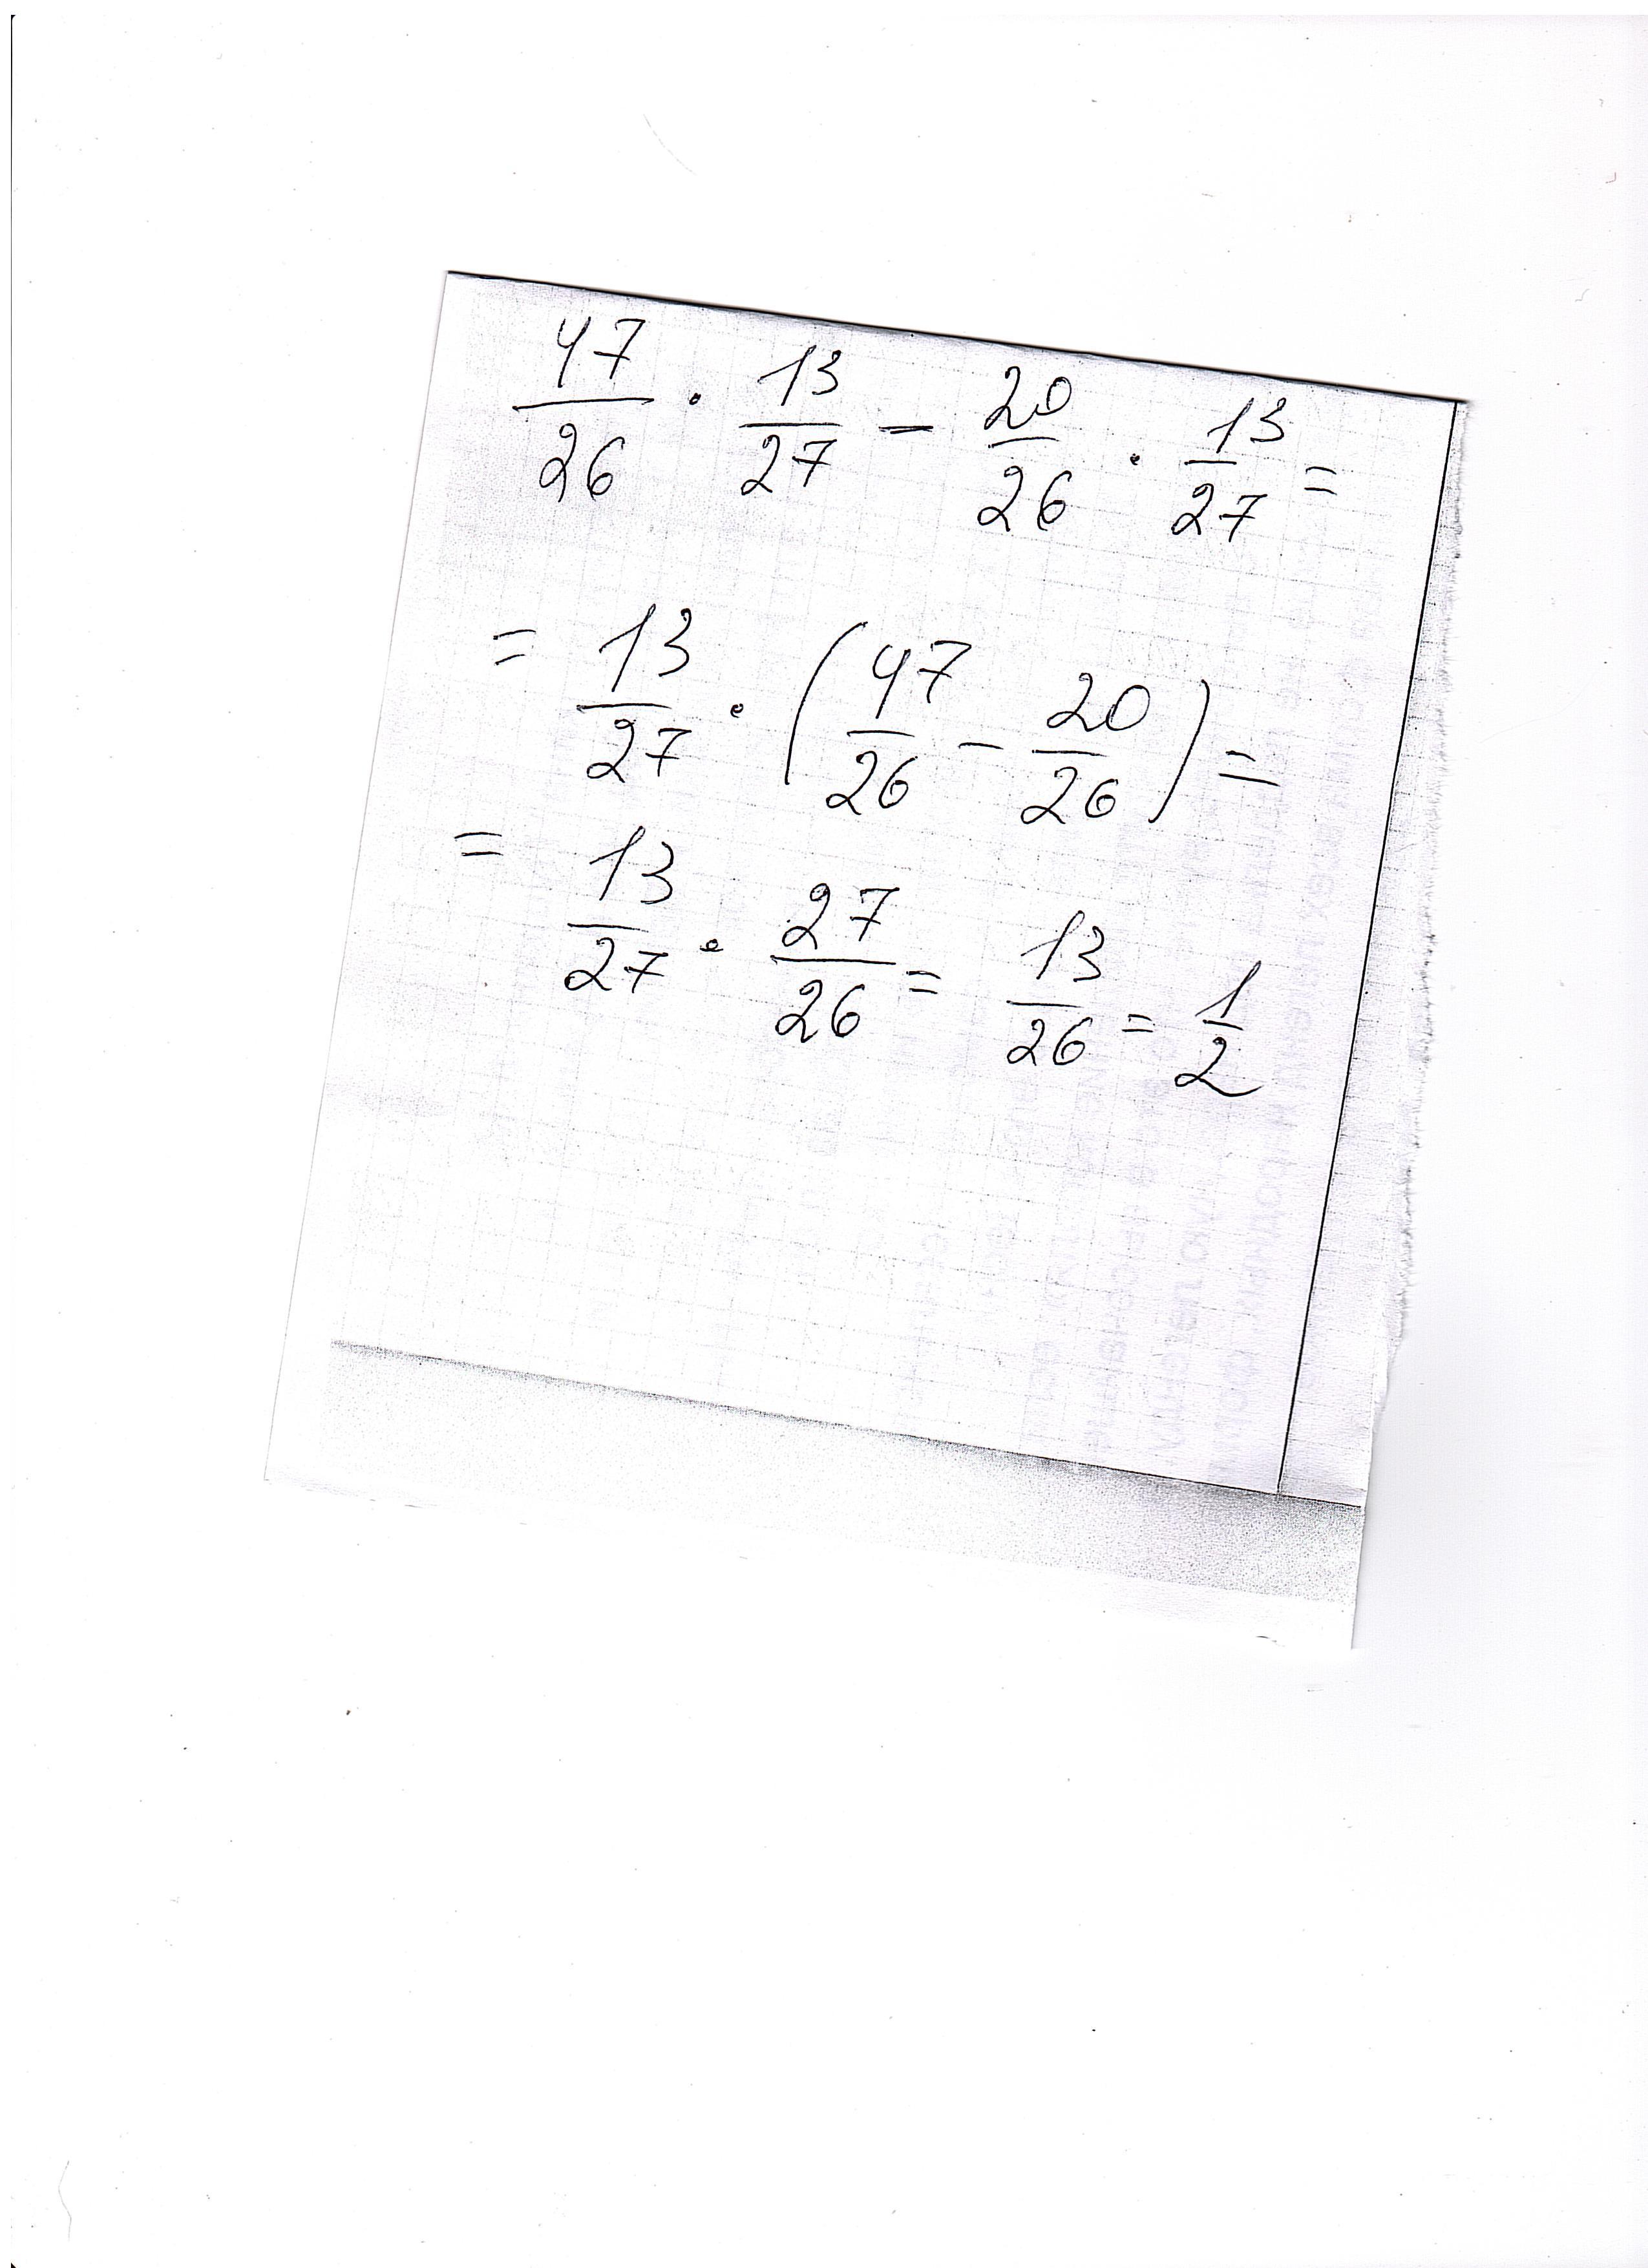 47/26 · 13/27 - 20/26 · 13/27 =
= 13/27 · (47/26 - 20/26) =
= 13/27 · 27/26 = 13/26 = 1/2